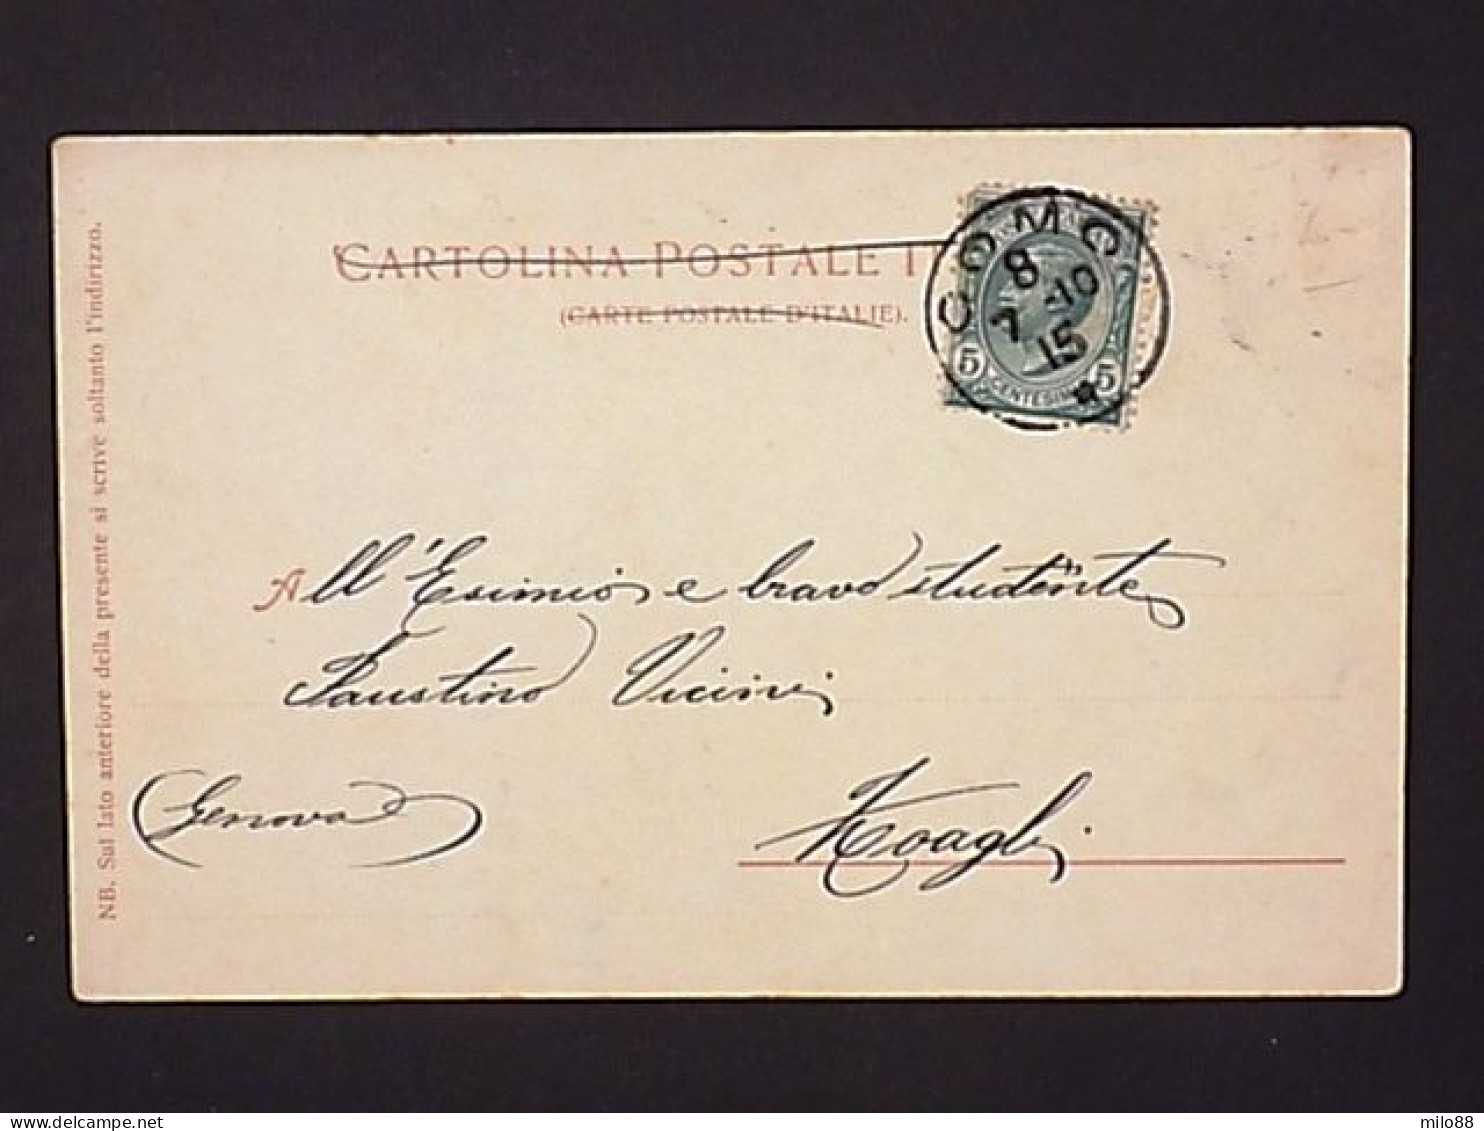 CARTOLINA POSTALE I
(CARTE POSTALE D'ITALIE).
COMO
8 7 -10
15
5 5
CENTESIMI
All'Esimio e bravo studente
Faustino Vicini
(Genova)
Zoagli
NB. Sul lato anteriore della presente si scrive soltanto l'indirizzo.
milo88